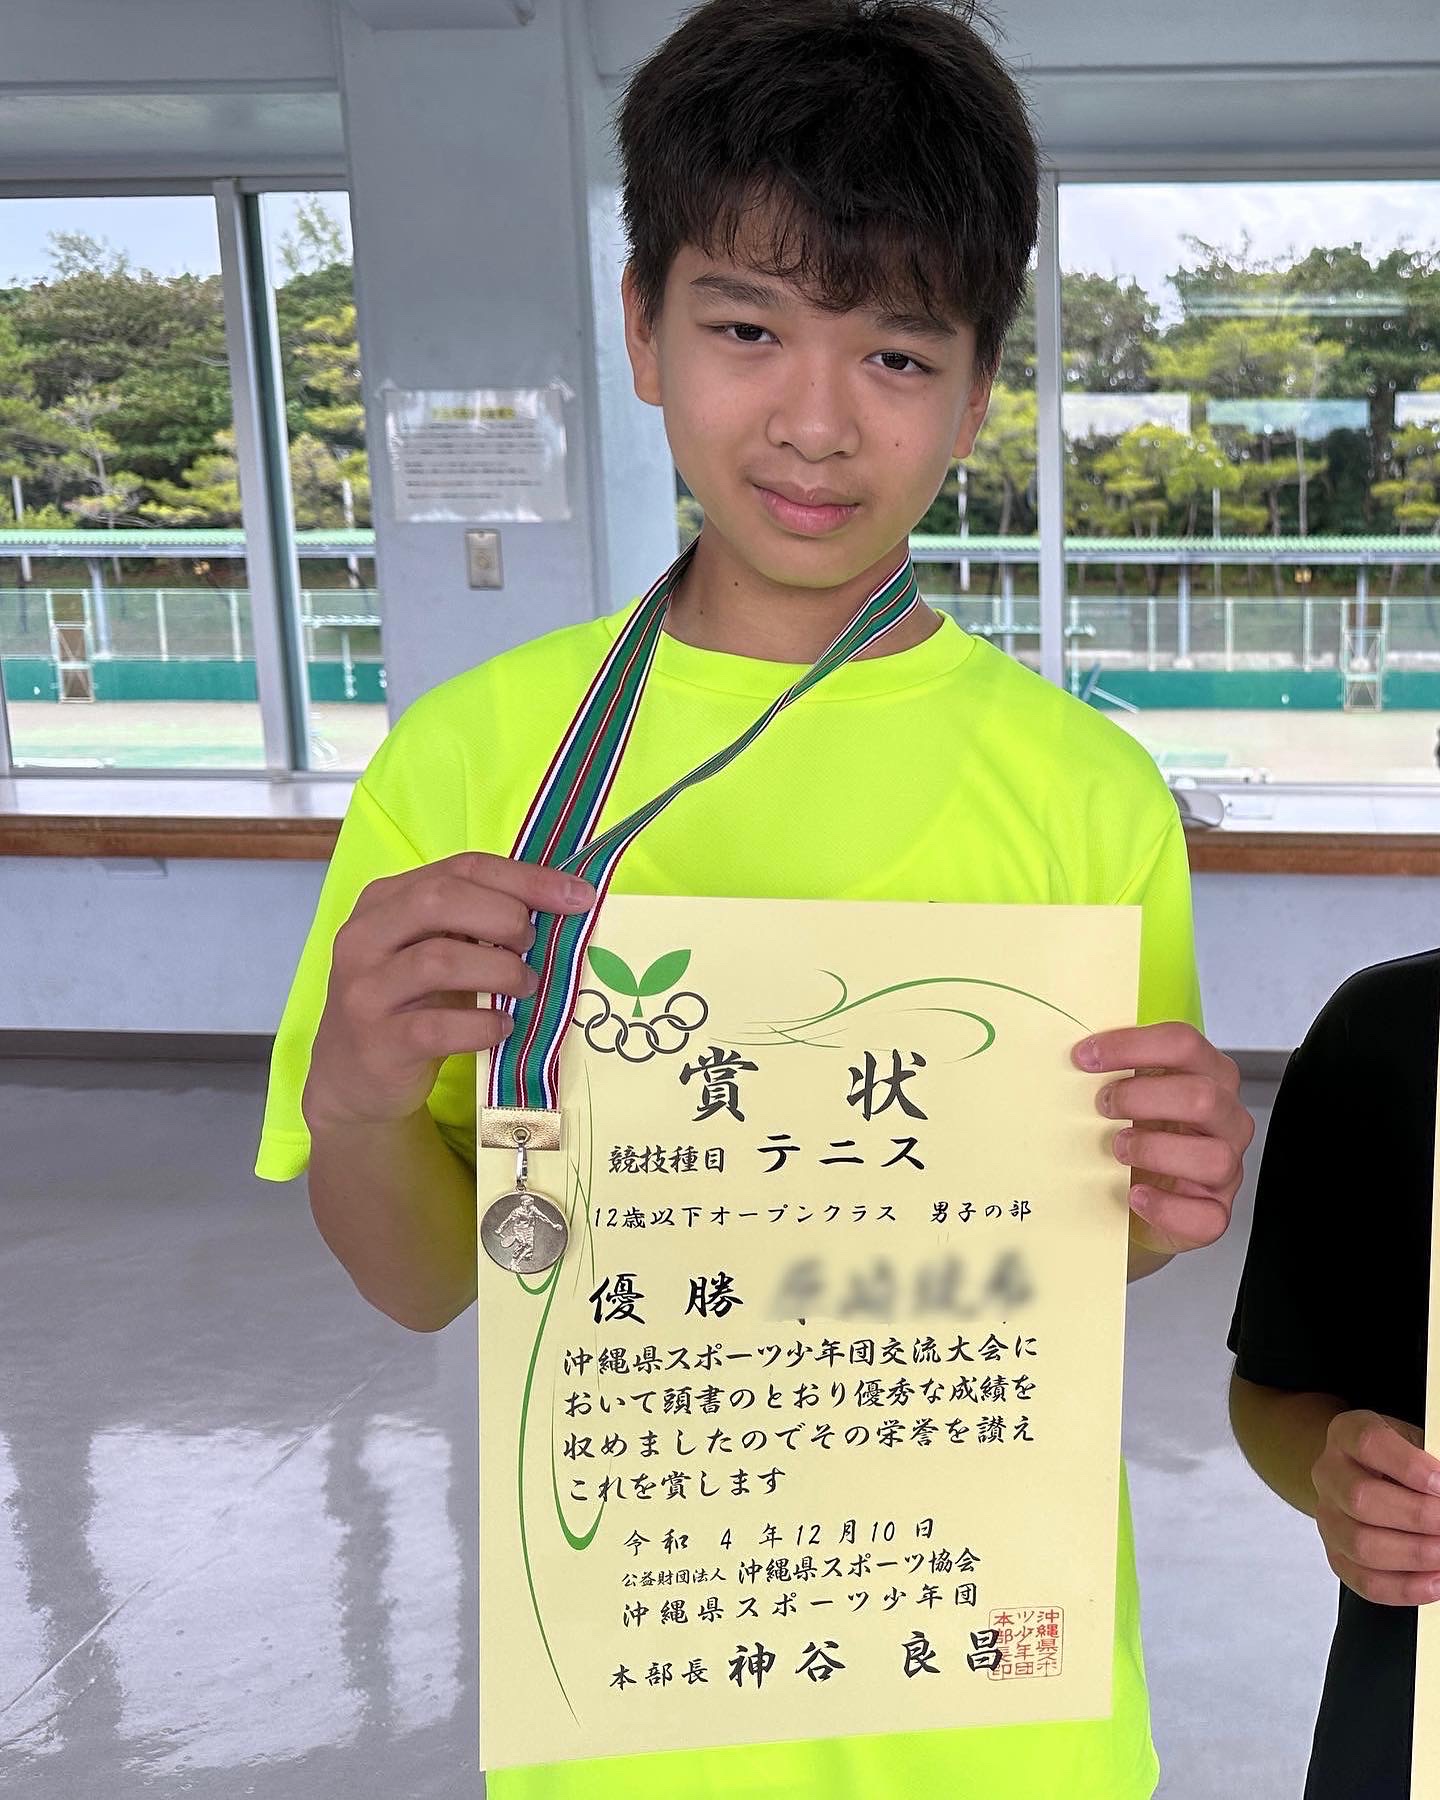 賞状
競技種目 テニス
12歳以下オープンクラス 男子の部
優勝
沖縄県スポーツ少年団交流大会に
おいて頭書のとおり優秀な成績を
収めましたのでその栄誉を讃え
これを賞します
令和 4 年 12 月 10 日
公益財団法人 沖縄県スポーツ協会
沖縄県スポーツ少年団
本部長 神谷 良昌
沖縄県スポ
ーツ少年団
本部長印